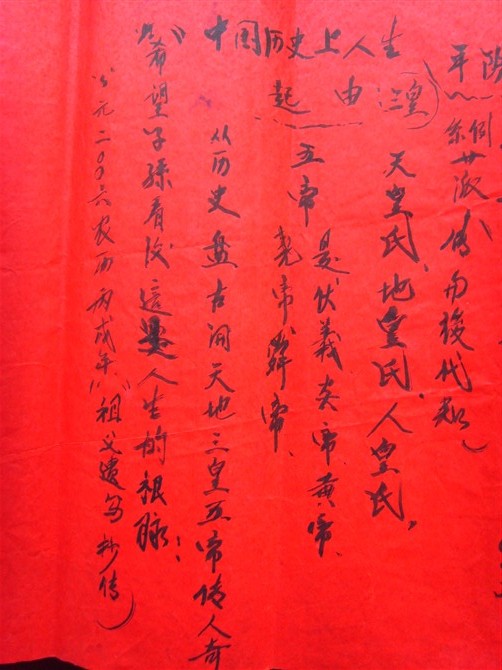 廿派傳与後代知)
中国历史上人生
起由(三皇)
天皇氏、地皇氏、人皇氏。
五帝是伏義炎帝黄帝、
尧帝舜帝、
从历史盘古開天地三皇五帝传人奇
《希望子孫看後這是人生的根脉:
公元二00六农历丙戌年《祖父遗写抄传)